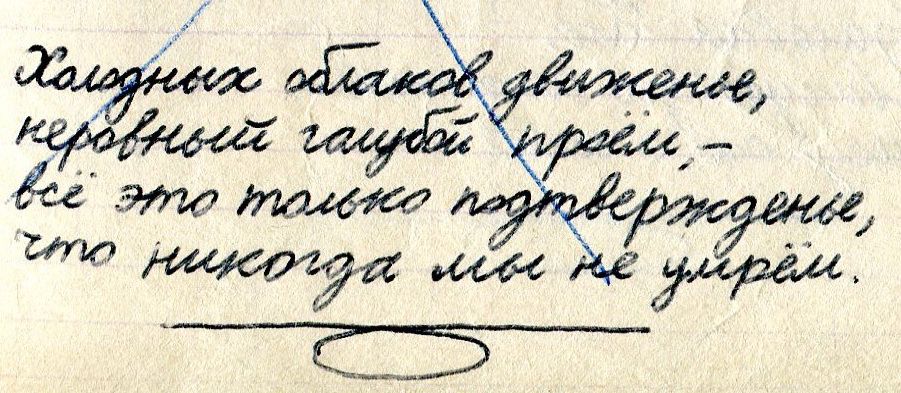 Холодных облаков движенье,
неровный голубой проём,–
всё это только подтвержденье,
что никогда мы не умрём.